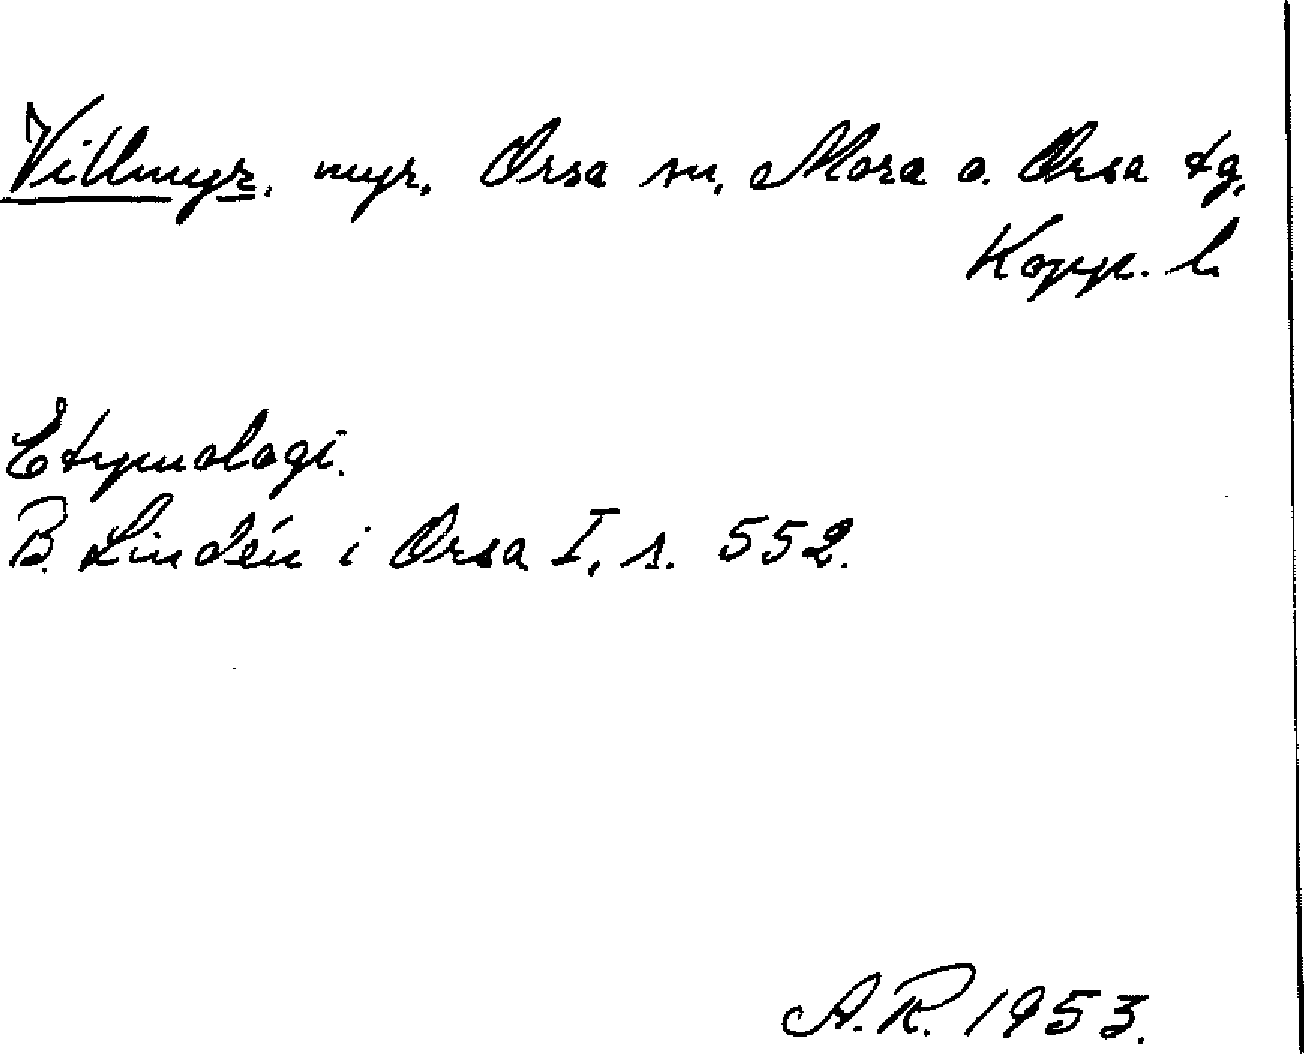 Villmyr, myr, Orsa sn, Mora o. Orsa tg,
Kopp. l.
Etymologi.
B. Lindén i Orsa I, s. 552.
A.R. 1953.